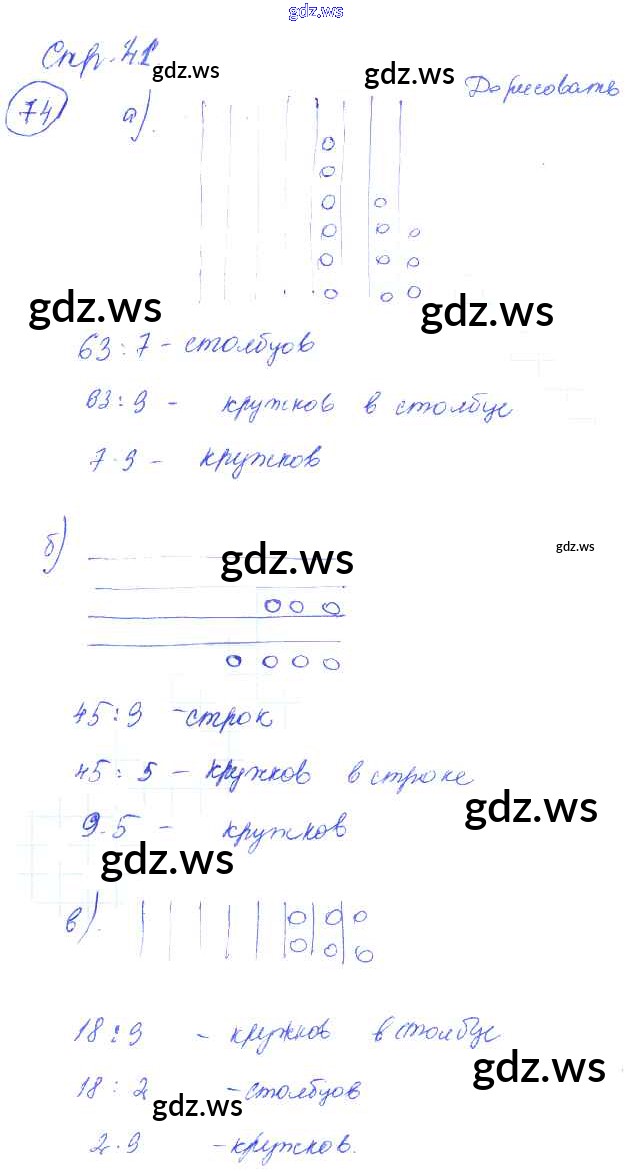 gdz.ws
Стр. 41
gdz.ws
gdz.ws
Дорисовать
74
а).
gdz.ws
gdz.ws
63 : 7 - столбцов
63 : 9 - кружков в столбце
7 · 9 - кружков
б)
gdz.ws
gdz.ws
45 : 9 - строк
45 : 5 - кружков в строке
gdz.ws
9 · 5 - кружков
gdz.ws
в).
18 : 9 - кружков в столбце
gdz.ws
18 : 2 - столбцов
gdz.ws
2 · 9 - кружков.